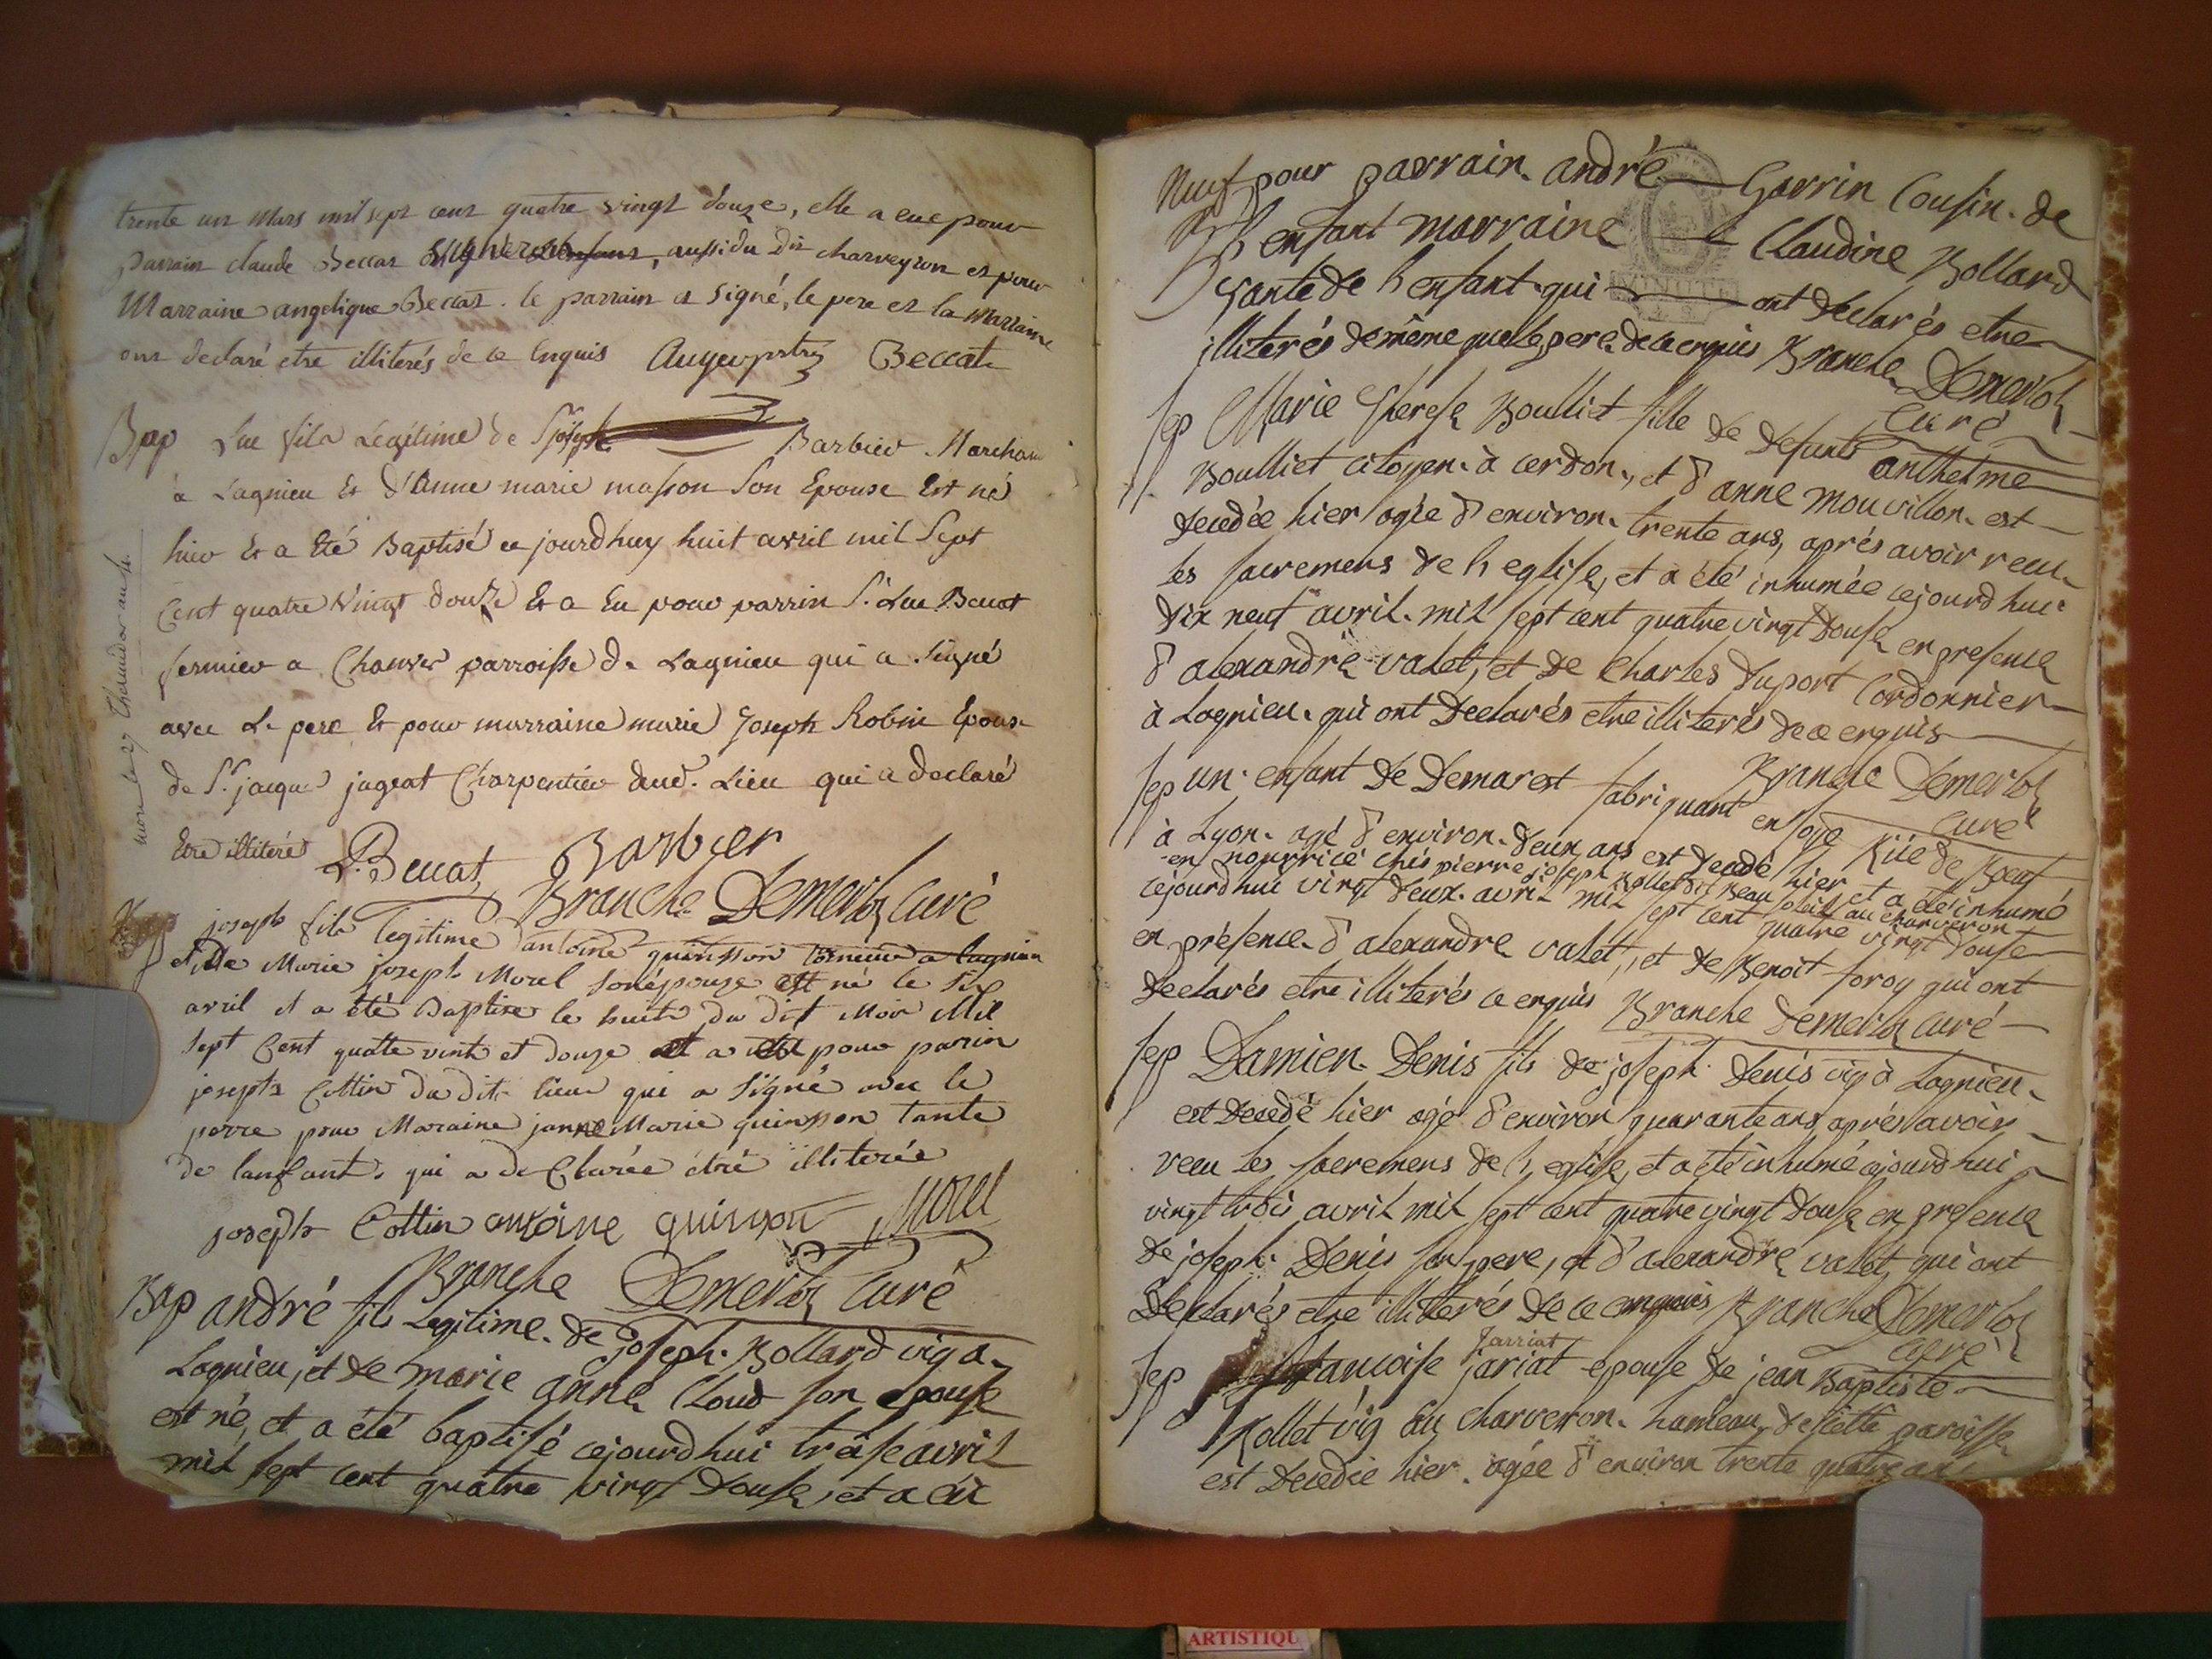 trente un mars mil sept cent quatre vingt douze, elle a eue pour
parrain claude Beccat aussi du dit charveyron et pour
Marraine angelique Beccat. le parrain a signé, le pere et la marraine
ont declaré etre illiterés de ce Enquis Beccat
Bap Luc fils Legitime de Sr joseph Barbier Marchand
à Lagnieu Et d'Anne marie masson Son Epouse Est né
hier Et a Eté Baptisé ce jourdhuy huit avril mil Sept
Cent quatre Vingt douze Et a Eu pour parrin Sr. Luc Beccat
fermier a parroisse de Lagnieu qui a Signé
avec Le pere Et pour marraine marie Joseph Robin Epouse
de Sr. jacque jageat Charpentier dud. Lieu qui a declaré
Etre illiteré L. Beccat Barbier
Branche Demerloz Curé
joseph fils legitime dantoine quinsson a lagnieu
et de Marie joseph Morel son épouse est né le six
avril et a été Baptise le huit du dit Moi Mil
sept Cent quatte vint et douze et a eu pour parin
joseph Cottin du dit lieu qui a Signé avec le
perre pour Maraine janne Marie quinson tante
de lanfant qui a de Clarée étre illiterée
joseph Cottin antoine quinson Morel
Branche Demerloz Curé
Bap andré fils Legitime de joseph Bollard vig a
Lagnieu, et de marie anne Cloud son epouse
est né, et a été baptisé cejourd'hui treise avril
mil sept cent quatre vingt douse, et a eu
Neuf pour parrain andré Garrin Cousin de
l'enfant marraine Claudine Bollard
tante de l'enfant qui ont declarés etre
illiterés de même que le pere de ce enquis Branche Demerloz
Curé
MINUTE
Sep Marie Therese Boulliet fille de defunt anthelme
Boulliet citoyen à cerdon, et d'anne mouvillon est
decedée hier agée d'environ trente ans, aprés avoir recu
les sacremens de l'eglise, et a été inhumée cejourd'hui
dix neuf avril mil sept cent quatre vingt douse en presence
d'alexandre valet, et de Charles duport Cordonnier
à Lagnieu qui ont declarés etre illiterés de ce enquis
Branche Demerloz
Curé
Sep un enfant de Demarest fabriquant en soye Rüe de Bœuf
à Lyon agé d'environ deux ans est decedé hier et a été inhumé
en nourrice chés pierre joseph Rollet dit Beau soleil au charveron
cejourd'hui vingt deux avril mil sept cent quatre vingt douse
en présence d'alexandre valet, et de Benoit foroy qui ont
declarés etre illiterés ce enquis Branche Demerloz Curé
Sep Damien Denis fils de joseph Denis vig à Lagnieu
est decedé hier agé d'environ quarante ans, aprés avoir
recu les sacremens de l'eglise, et a été inhumé cejourd'hui
vingt trois avril mil sept cent quatre vingt douse en presence
de joseph Denis son pere, et d'alexandre valet, qui ont
declarés etre illiterés de ce enquis Branche Demerloz
Curé
Jarriat
Sep francoise jariat epouse de jean Baptiste
Rollet vig au charveron hameau de cette paroisse
est decedée hier agée d'environ trente quatre ans
ARTISTIQU